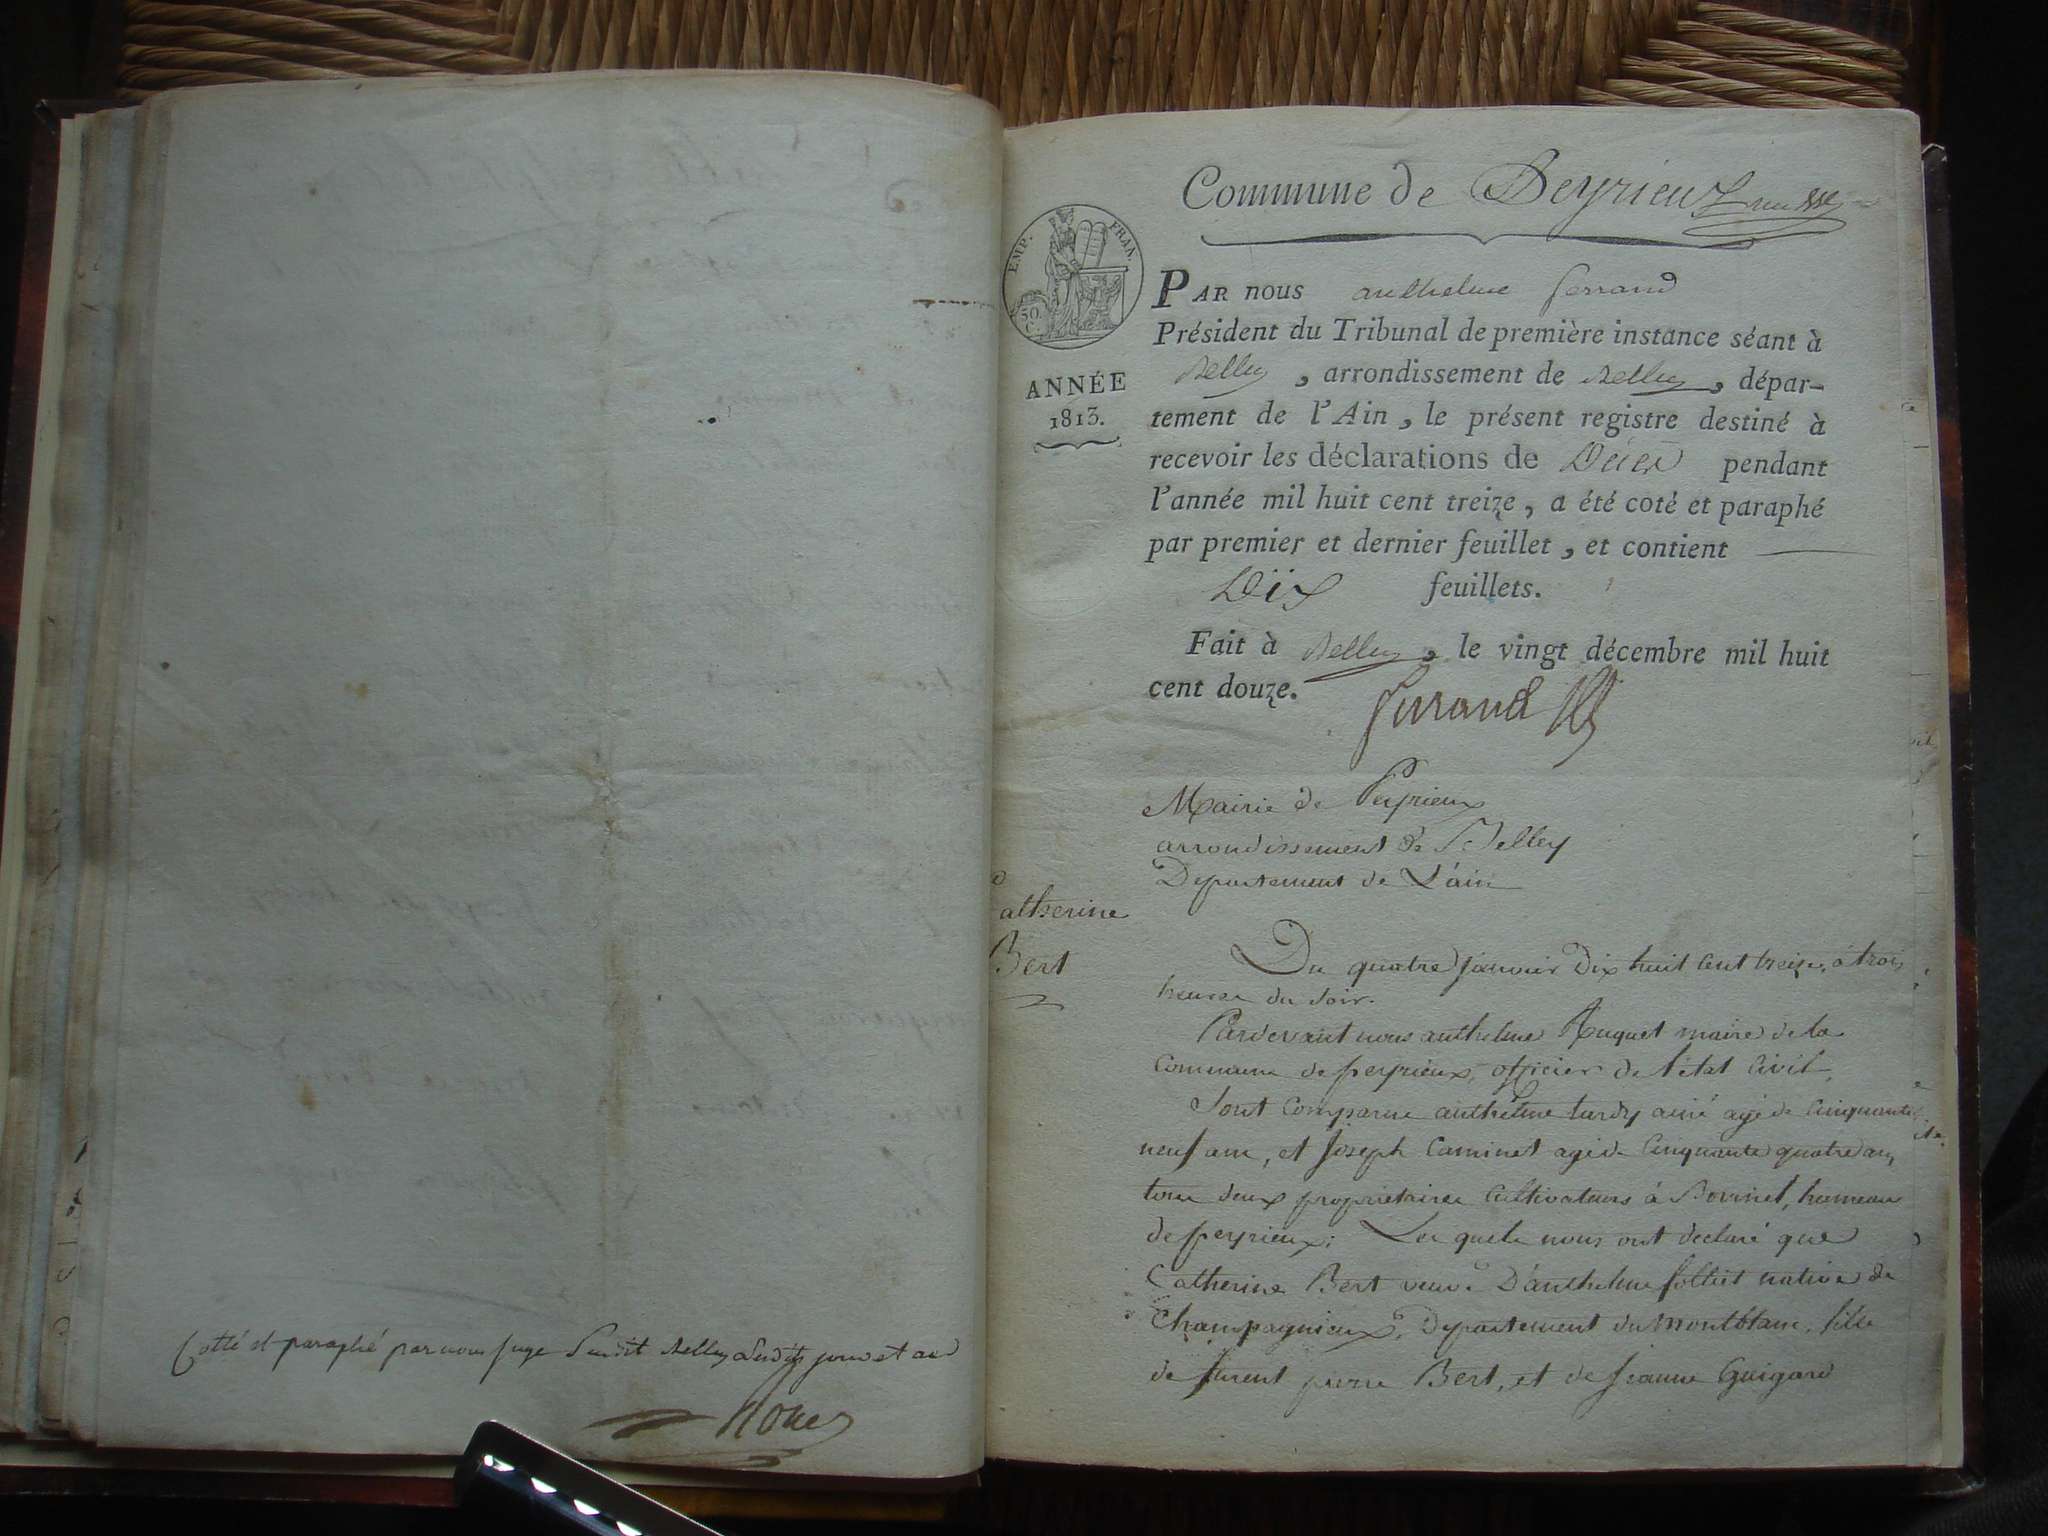 Cotté et paraphé par nous juge Susdit Belley Lesdits jour et an
Commune de Peyrieux
EMP. FRAN.
50.
C.
ANNÉE
1813.
PAR nous anthelme ferrand
Président du Tribunal de première instance séant à
Belley, arrondissement de Belley, dépar-
tement de l'Ain, le présent registre destiné à
recevoir les déclarations de Décès pendant
l'année mil huit cent treize, a été coté et paraphé
par premier et dernier feuillet, et contient
Dix feuillets.
Fait à Belley, le vingt décembre mil huit
cent douze.
ferrand
Mairie de Peyrieux
arrondissement de Belley
Departement de L'ain
atherine
Bert
Du quatre janvier Dix huit Cent treize, à trois
heures du soir.
Pardevant nous anthelme Ruquet maire de la
Commune de peyrieux, officier de l'état Civil,
Sont Comparus anthelme turdy ainé agé de Cinquante
neuf ans, et Joseph Caminet agé de Cinquante quatre ans
tous deux proprietaires Cultivateurs à Borvinet, hameau
de peyrieux; Les quels nous ont declaré que
Catherine Bert veuve D'anthelme folliet native de
Champagnieux, Departement du Montblanc, fille
de furent pierre Bert, et de jeanne Guigard